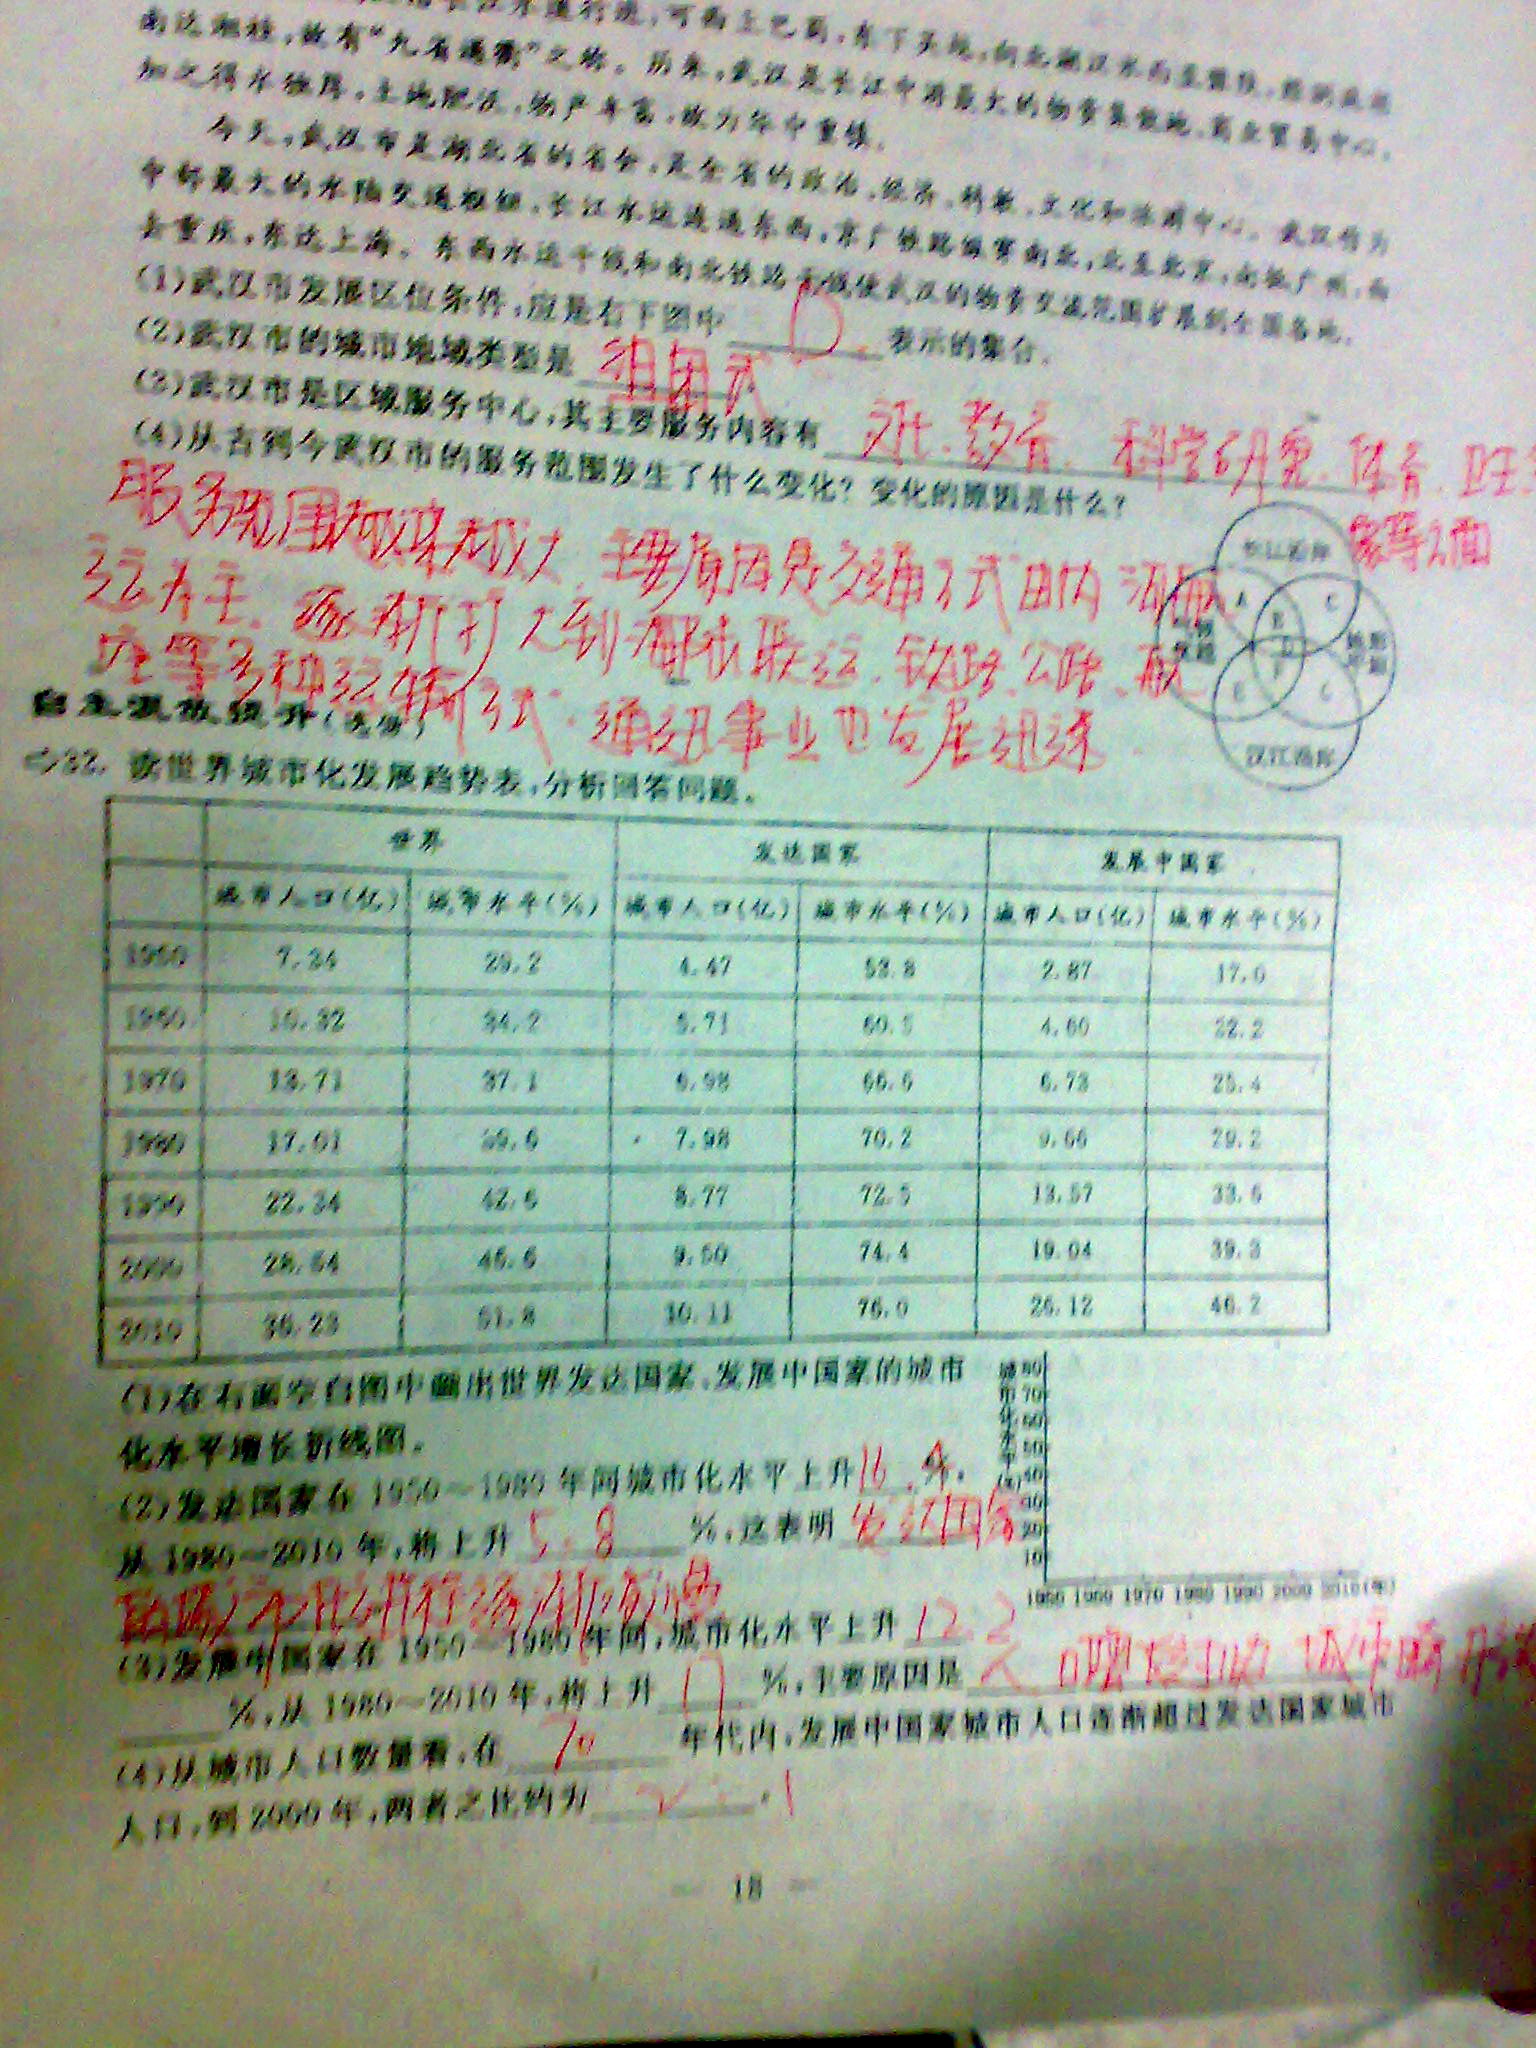 南达湘桂,故有“九省通衢”之称。历来,武汉是长江中游最大的物资集散地、商业贸易中心,
加之得水独厚,土地肥沃,物产丰富,成为华中重镇。
今天,武汉市是湖北省的省会,是全省的政治、经济、科教、文化和旅游中心。武汉作为
中部最大的水陆交通枢纽,长江水运连通东西,京广铁路纵贯南北,北至北京,南抵广州,西
去重庆,东达上海。东西水运干线和南北铁路干线使武汉的物资交流范围扩展到全国各地。
(1)武汉市发展区位条件,应是右下图中 D 表示的集合。
(2)武汉市的城市地域类型是 组团式
(3)武汉市是区域服务中心,其主要服务内容有 教育、科学研究、体育、
(4)从古到今武汉市的服务范围发生了什么变化?变化的原因是什么?
服务范围越来越大,主要原因是交通方式由内河航
运为主,逐渐扩大到 联运、铁路、公路、航
空等多种运输方式,通讯事业也发展迅速
长江沿岸
A
B
C
D
E
F
C
汉江沿岸
自主测试提升(选做)
22. 读世界城市化发展趋势表,分析回答问题。
世界 发达国家 发展中国家
城市人口(亿) 城市水平(%) 城市人口(亿) 城市水平(%) 城市人口(亿) 城市水平(%)
1950 7.34 29.2 4.47 53.8 2.87 17.0
1960 10.32 34.2 5.71 60.5 4.60 22.2
1970 13.71 37.1 6.98 66.6 6.73 25.4
1980 17.61 39.6 7.98 70.2 9.66 29.2
1990 22.34 42.6 8.77 72.5 13.57 33.6
2000 28.54 46.6 9.50 74.4 19.04 39.3
2010 36.23 51.8 10.11 76.0 26.12 46.2
(1)在右面空白图中画出世界发达国家、发展中国家的城市
化水平增长折线图。
(2)发达国家在1950~1980年间城市化水平上升16.4%,
从1980~2010年,将上升 5.8 %,这表明 发达国家
(3)发展中国家在1950~1980年间,城市化水平上升 12.2
%,从1980~2010年,将上升 17 %,主要原因是 人口
(4)从城市人口数量看,在 70 年代内,发展中国家城市人口逐渐超过发达国家城市
人口,到2000年,两者之比约为 2:1
城市化水平(%)
80
70
60
50
40
30
20
10
1950 1960 1970 1980 1990 2000 2010(年)
18